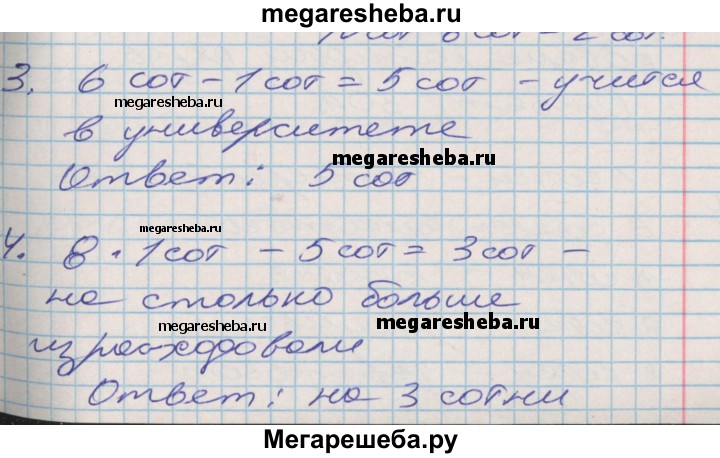 megaresheba.ru
3. 6 сот - 1 сот = 5 сот - учится
megaresheba.ru
в университете
megaresheba.ru
Ответ: 5 сот
megaresheba.ru
4. 8 · 1 сот - 5 сот = 3 сот -
на столько больше
megaresheba.ru
megaresheba.ru
израсходовали
Ответ: на 3 сотни
Мегарешеба.ру